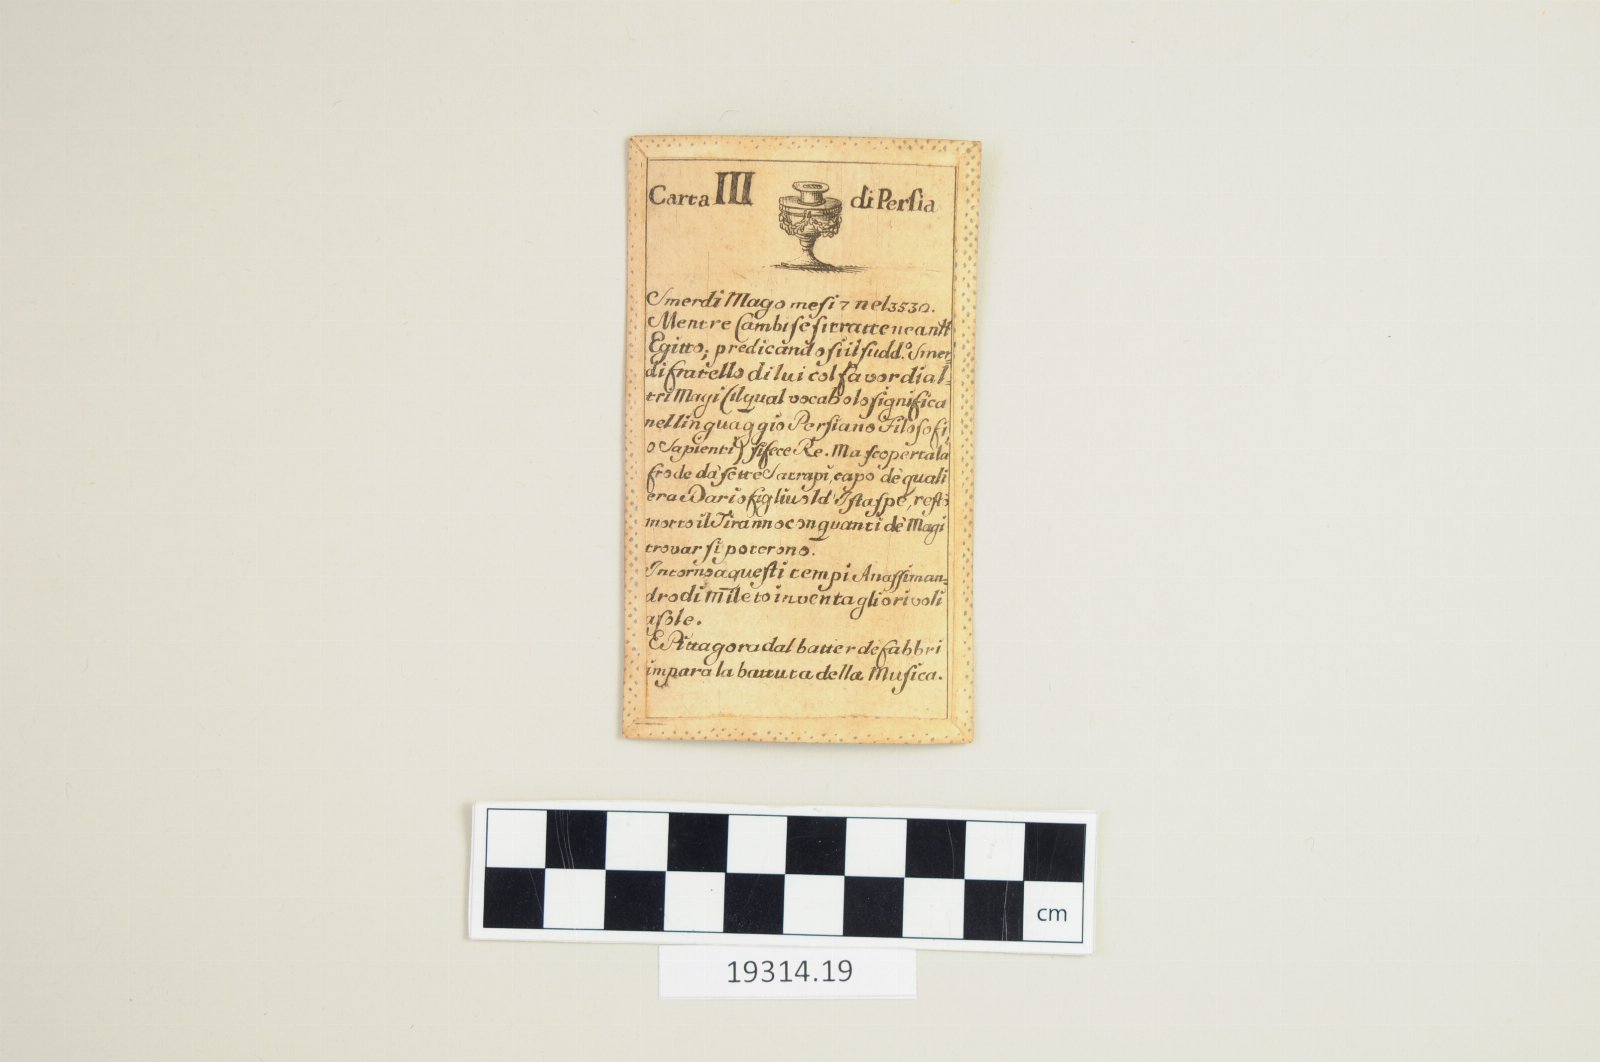 Carta III di Perſia
Smerdi Mago meſi 7 nel 3530.
Mentre Cambiſe ſi trattenea nell'
Egitto; predicandoſi il ſudd.º Smer-
di fratello di lui col favor di al-
tri Magi (il qual vocabolo ſignifica
nel linguaggio Perſiano Filoſofi,
o Sapienti) ſi fece Re. Ma ſcoperta la
frode dà ſette Satrapi, capo dè quali
era Dario figliuol d'Iſtaſpe, reſtò
morto il Tiranno con quanti dè Magi
trovar ſi poterono.
Intorno a queſti tempi Anaſſiman-
dro di Mileto inventa gli orivoli
a ſole.
E Pittagora dal batter de fabbri
impara la battuta della Muſica.
cm
19314.19